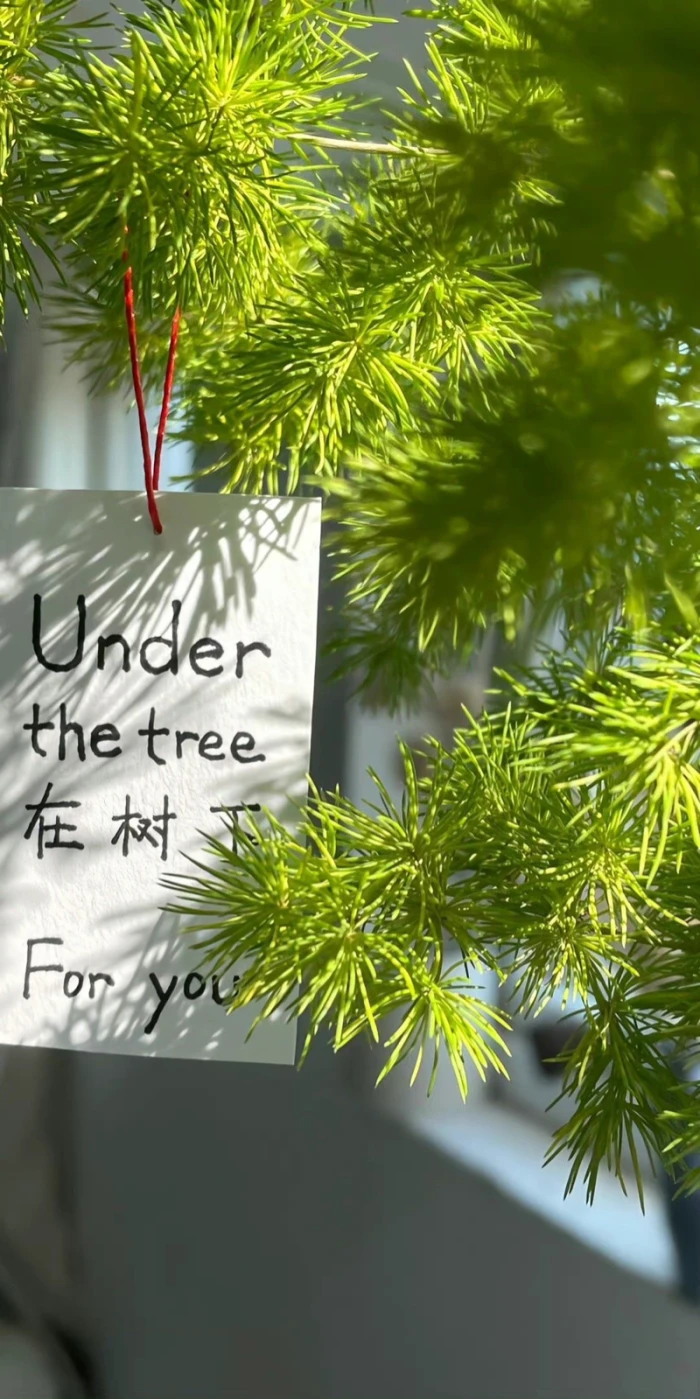 Under
the tree
在树下
For you